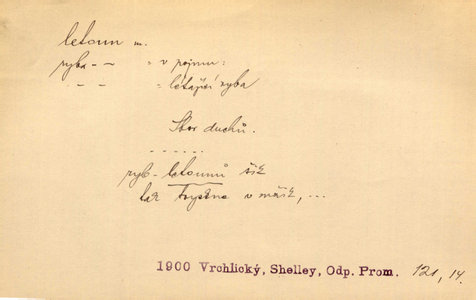 letoun m.
ryba - - " v pojmu:
- - " létající ryba
Sbor duchů.
. . . . . .
ryb-letounů šík
tak tryskne v
1900 Vrchlický, Shelley, Odp. Prom. 121, 14.